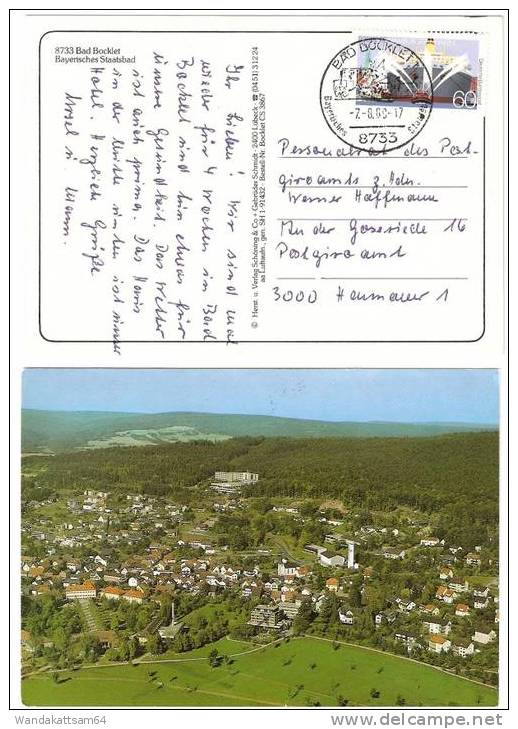 8733 Bad Bocklet
Bayerisches Staatsbad
Ihr Lieben! Wir sind mal
wieder für 4 Wochen in Bad
Bocklet und tun etwas für
unsere Gesundheit. Das Wetter
ist auch prima. Das Haus
in der Mitte unten ist unser
Hotel. Herzliche Grüße
u. Mann.
© Herst. u. Verlag Schöning & Co + Gebrüder Schmidt · 2400 Lübeck · ☎ (0451) 31224
aa Luftaufn., gen. SH 1-91432 · Bestell-Nr. Bocklet CS 3867
BAD BOCKLET
Bayerisches
8733
60
Personalrat des Post-
giroamts z. Hdn.
Werner Hoffmann
An der Goseriede 16
Postgiroamt
3000 Hannover 1
Wandakattsam64
www.delcampe.net